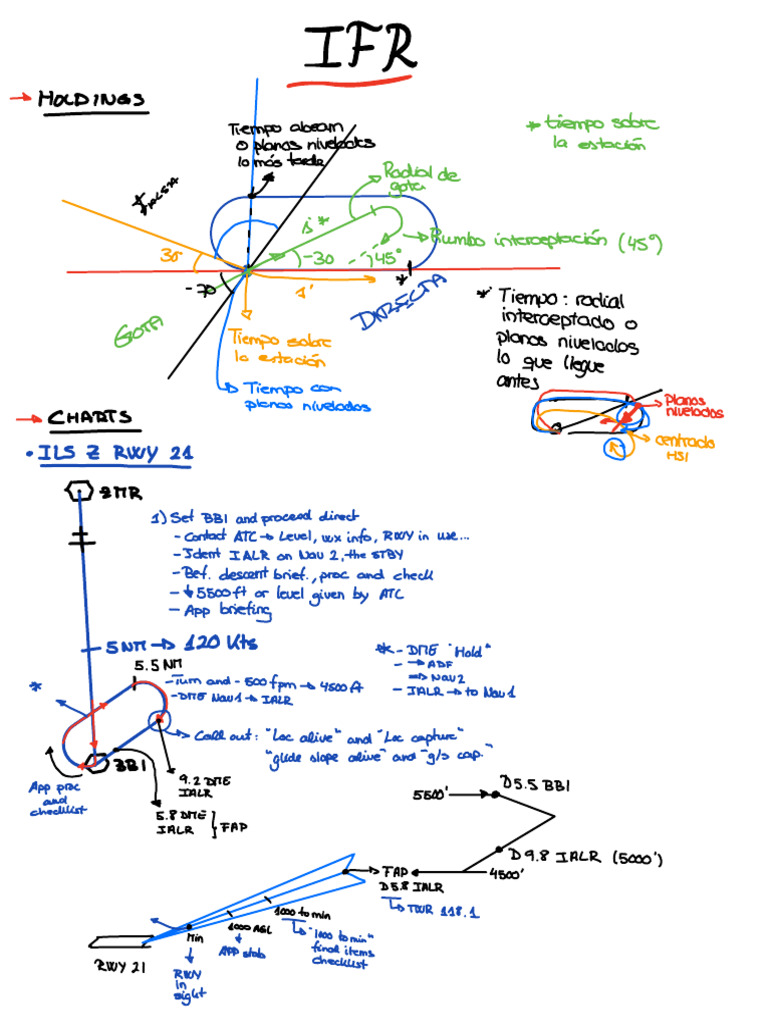 IFR
→ HOLDINGS
Tiempo abeam
o planos nivelados
lo más tarde
* tiempo sobre
la estación
Radial de
gota
1' *
Rumbo interceptación (45º)
30
-30
45°
1'
*
-70
GOTA
DIRECTA
Tiempo sobre
la estación
→ Tiempo con
planos nivelados
* Tiempo: radial
interceptado o
planos nivelados
lo que llegue
antes
Planos
nivelados
centrado
HSI
→ CHARTS
• ILS Z RWY 21
ZMR
1) Set BBI and proceed direct
- Contact ATC → Level, wx info, RWY in use...
- Ident IALR on Nav 2, the STBY
- Bef. descent brief., proc and check
- ↓ 5500 ft or level given by ATC
- App briefing
5 NM → 120 Kts
5.5 NM
*
- Turn and - 500 fpm → 4500 A
- DME Nav 1 → IALR
* - DME "Hold"
- → ADF
⇒ Nav2
- IALR → to Nav 1
Call out: "Loc alive" and "Loc capture"
"glide slope alive" and "g/s cap."
BBI
App proc
and
checklist
9.2 DME
IALR
5.8 DME
IALR } FAP
D5.5 BBI
5500'
D 9.8 IALR (5000')
4500'
FAP
D5.8 IALR
→ TWR 118.1
1000 to min
1000 AGL
Min
"1000 to min"
final items
checklist
App stab
RWY
in
sight
RWY 21